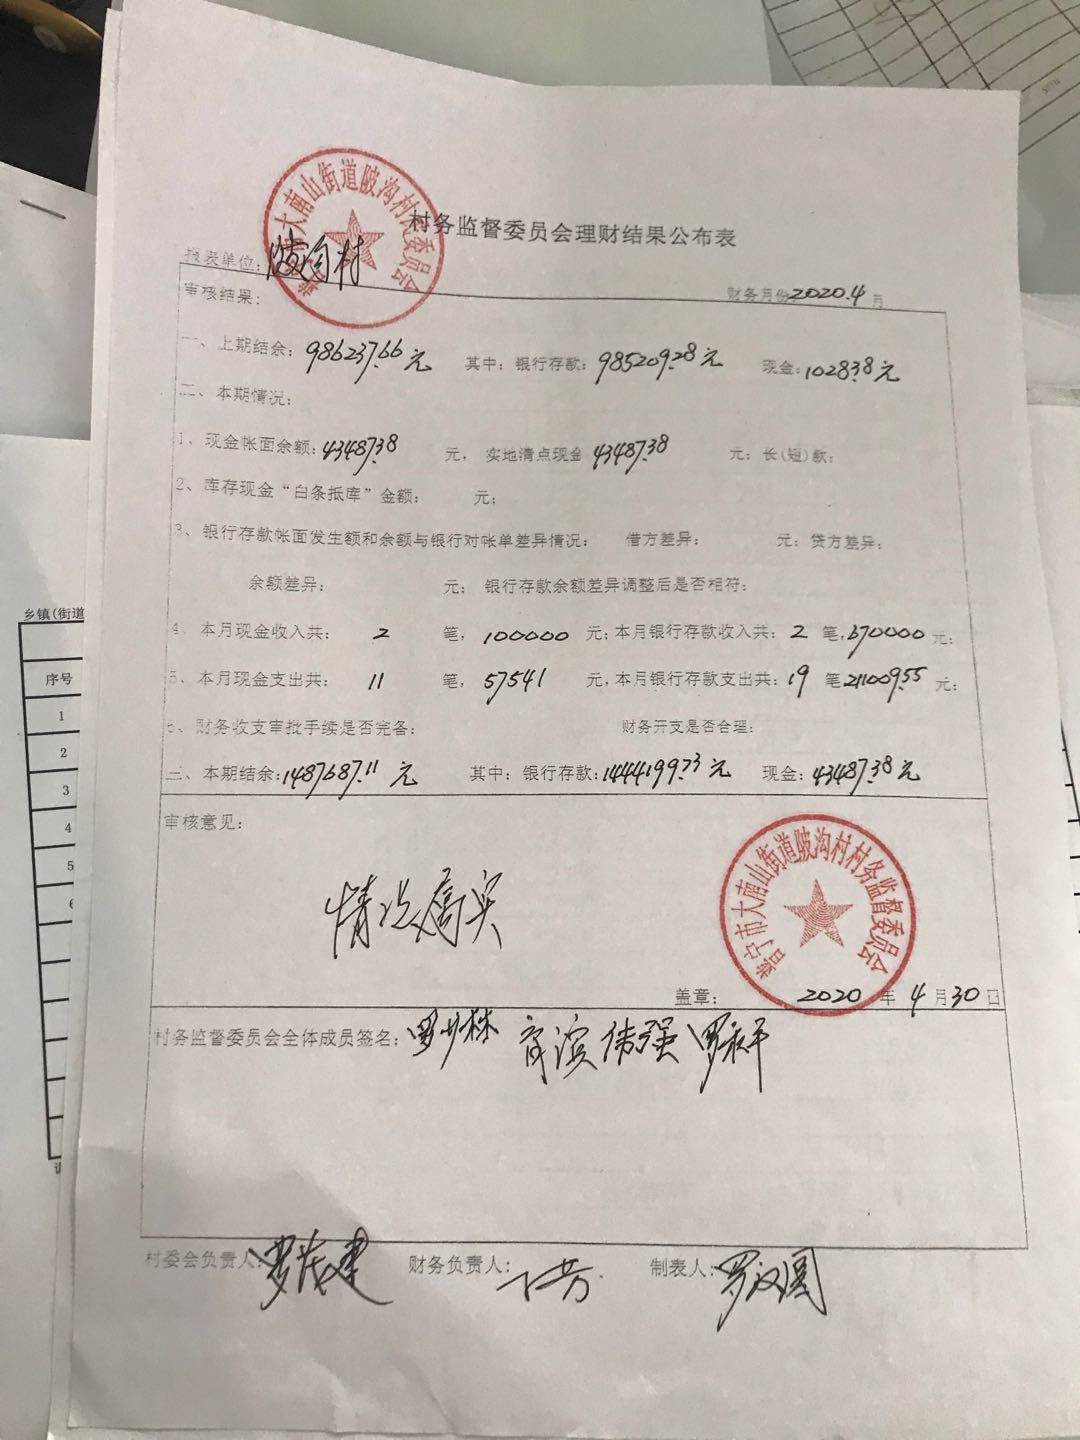 村务监督委员会理财结果公布表
报表单位：陂沟村
财务月份2020.4月
审核结果：
一、上期结余：986237.66元 其中：银行存款：985209.28元 现金：1028.38元
二、本期情况：
1、现金帐面余额：43487.38 元， 实地清点现金 43487.38 元；长(短)款；
2、库存现金“白条抵库”金额： 元；
3、银行存款帐面发生额和余额与银行对帐单差异情况： 借方差异： 元；贷方差异；
余额差异： 元； 银行存款余额差异调整后是否相符：
4、本月现金收入共： 2 笔，100000 元；本月银行存款收入共：2 笔，670000元；
5、本月现金支出共： 11 笔，57541 元，本月银行存款支出共：19 笔211009.55 元；
6、财务收支审批手续是否完备： 财务开支是否合理：
三、本期结余：1487687.11 元 其中：银行存款：1444199.73元 现金：43487.38元
审核意见：
情况属实
普宁市大南山街道陂沟村村务监督委员会
盖章： 2020 年 4 月 30 日
村务监督委员会全体成员签名：罗 林 滨 伟强 罗 平
村委会负责人：罗 建 财务负责人： 芳 制表人：罗汉
大南山街道陂沟村民委员会
乡镇(街道
序号
1
2
3
4
5
6